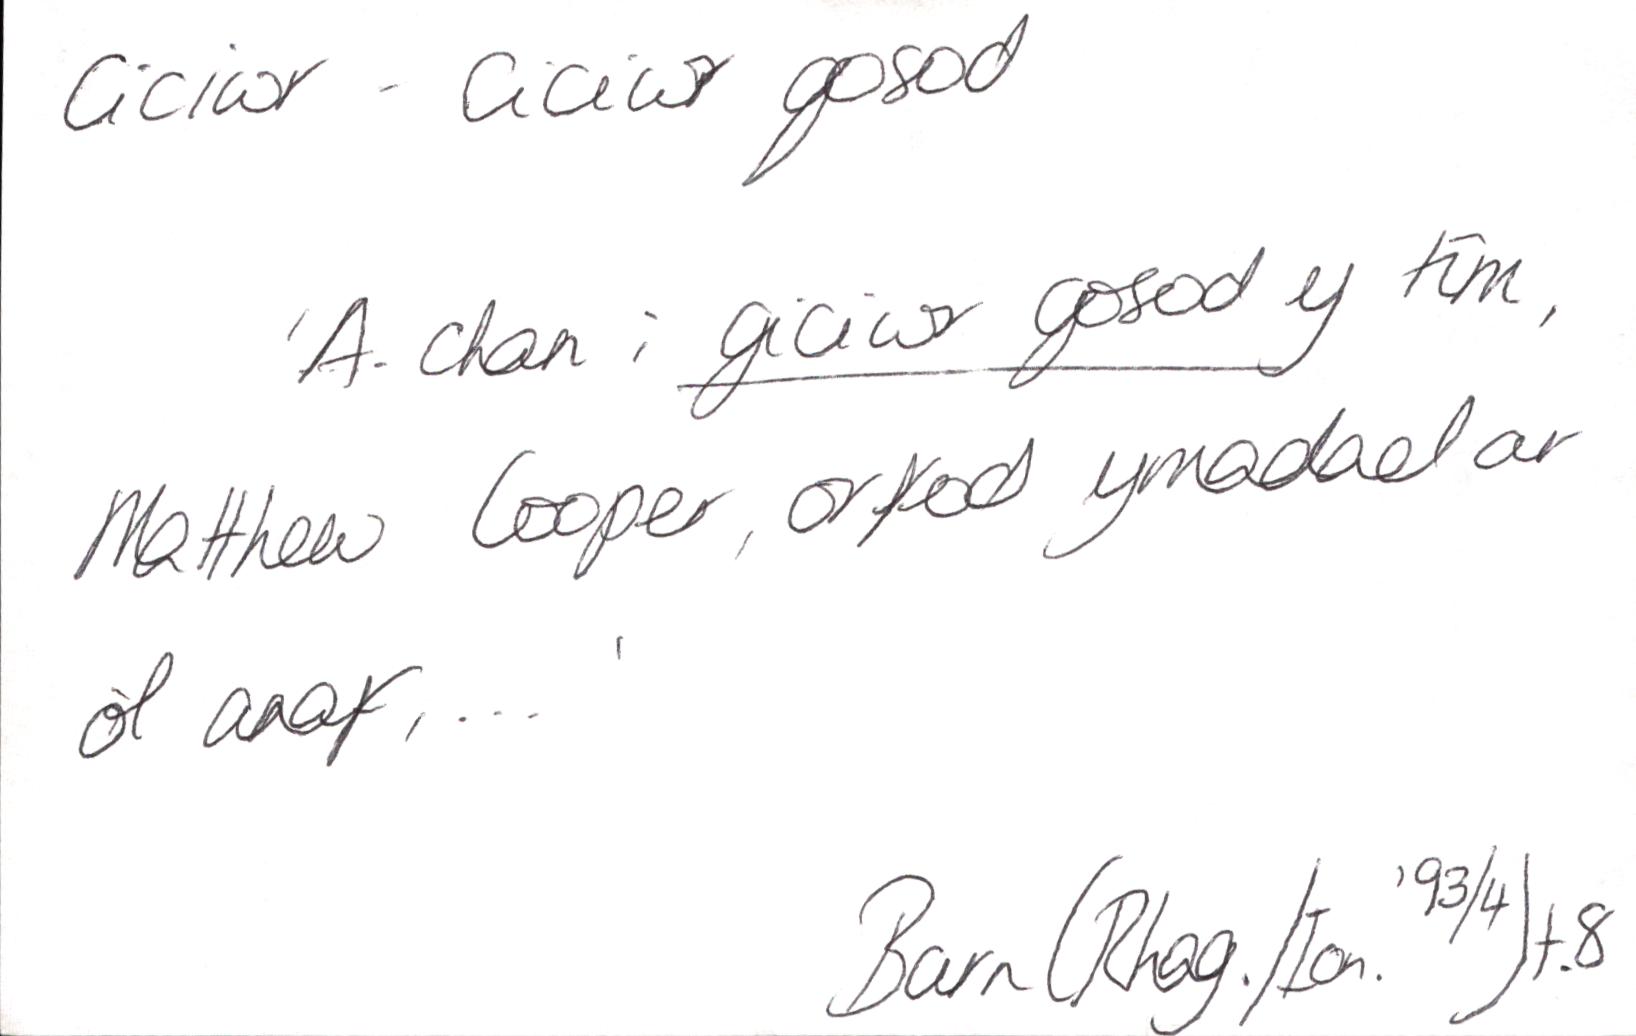 Ciciwr - Ciciwr gosod
'A chan i giciwr gosod y tîm,
Matthew Cooper, orfod ymadael ar
ôl anaf, ....'
Barn (Rhag./Ion. '93/4) t.8